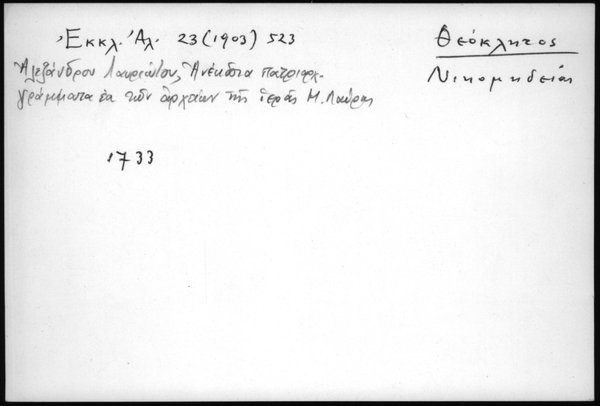 Ἐκκλ. Ἀλ. 23 (1903) 523
Θεόκλητος
Νικομηδείας
Ἀλεξάνδρου Λαυριώτου, Ἀνέκδοτα πατριαρχ.
γράμματα ἐκ τῶν ἀρχείων τῆς ἱερᾶς Μ. Λαύρας
1733